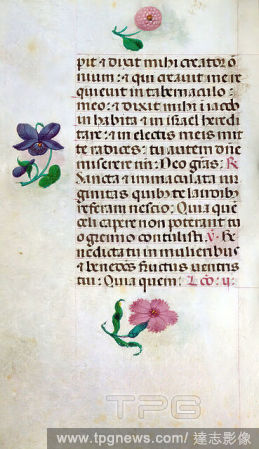 pit & dixit mihi creator õ
nium: & qui creauit me re
quieuit in tabernaculo
meo: & dixit mihi i iacob
inhabita & in israel heredi
tare: & in electis meis mit
te radices: tu autem dñe
miserere nr̃i: Deo grãs: R
Sancta & immaculata uir
ginitas quibꝰ te laudibꝰ
referam nescio: Quia quẽ
celi capere non poterant tu
o gremio contulisti. V. Be
nedicta tu in mulieribus
& benedcũs fructus uentris
tui: Quia quem: L cõ: ij:
TPG
www.tpgnews.com/ 達志影像